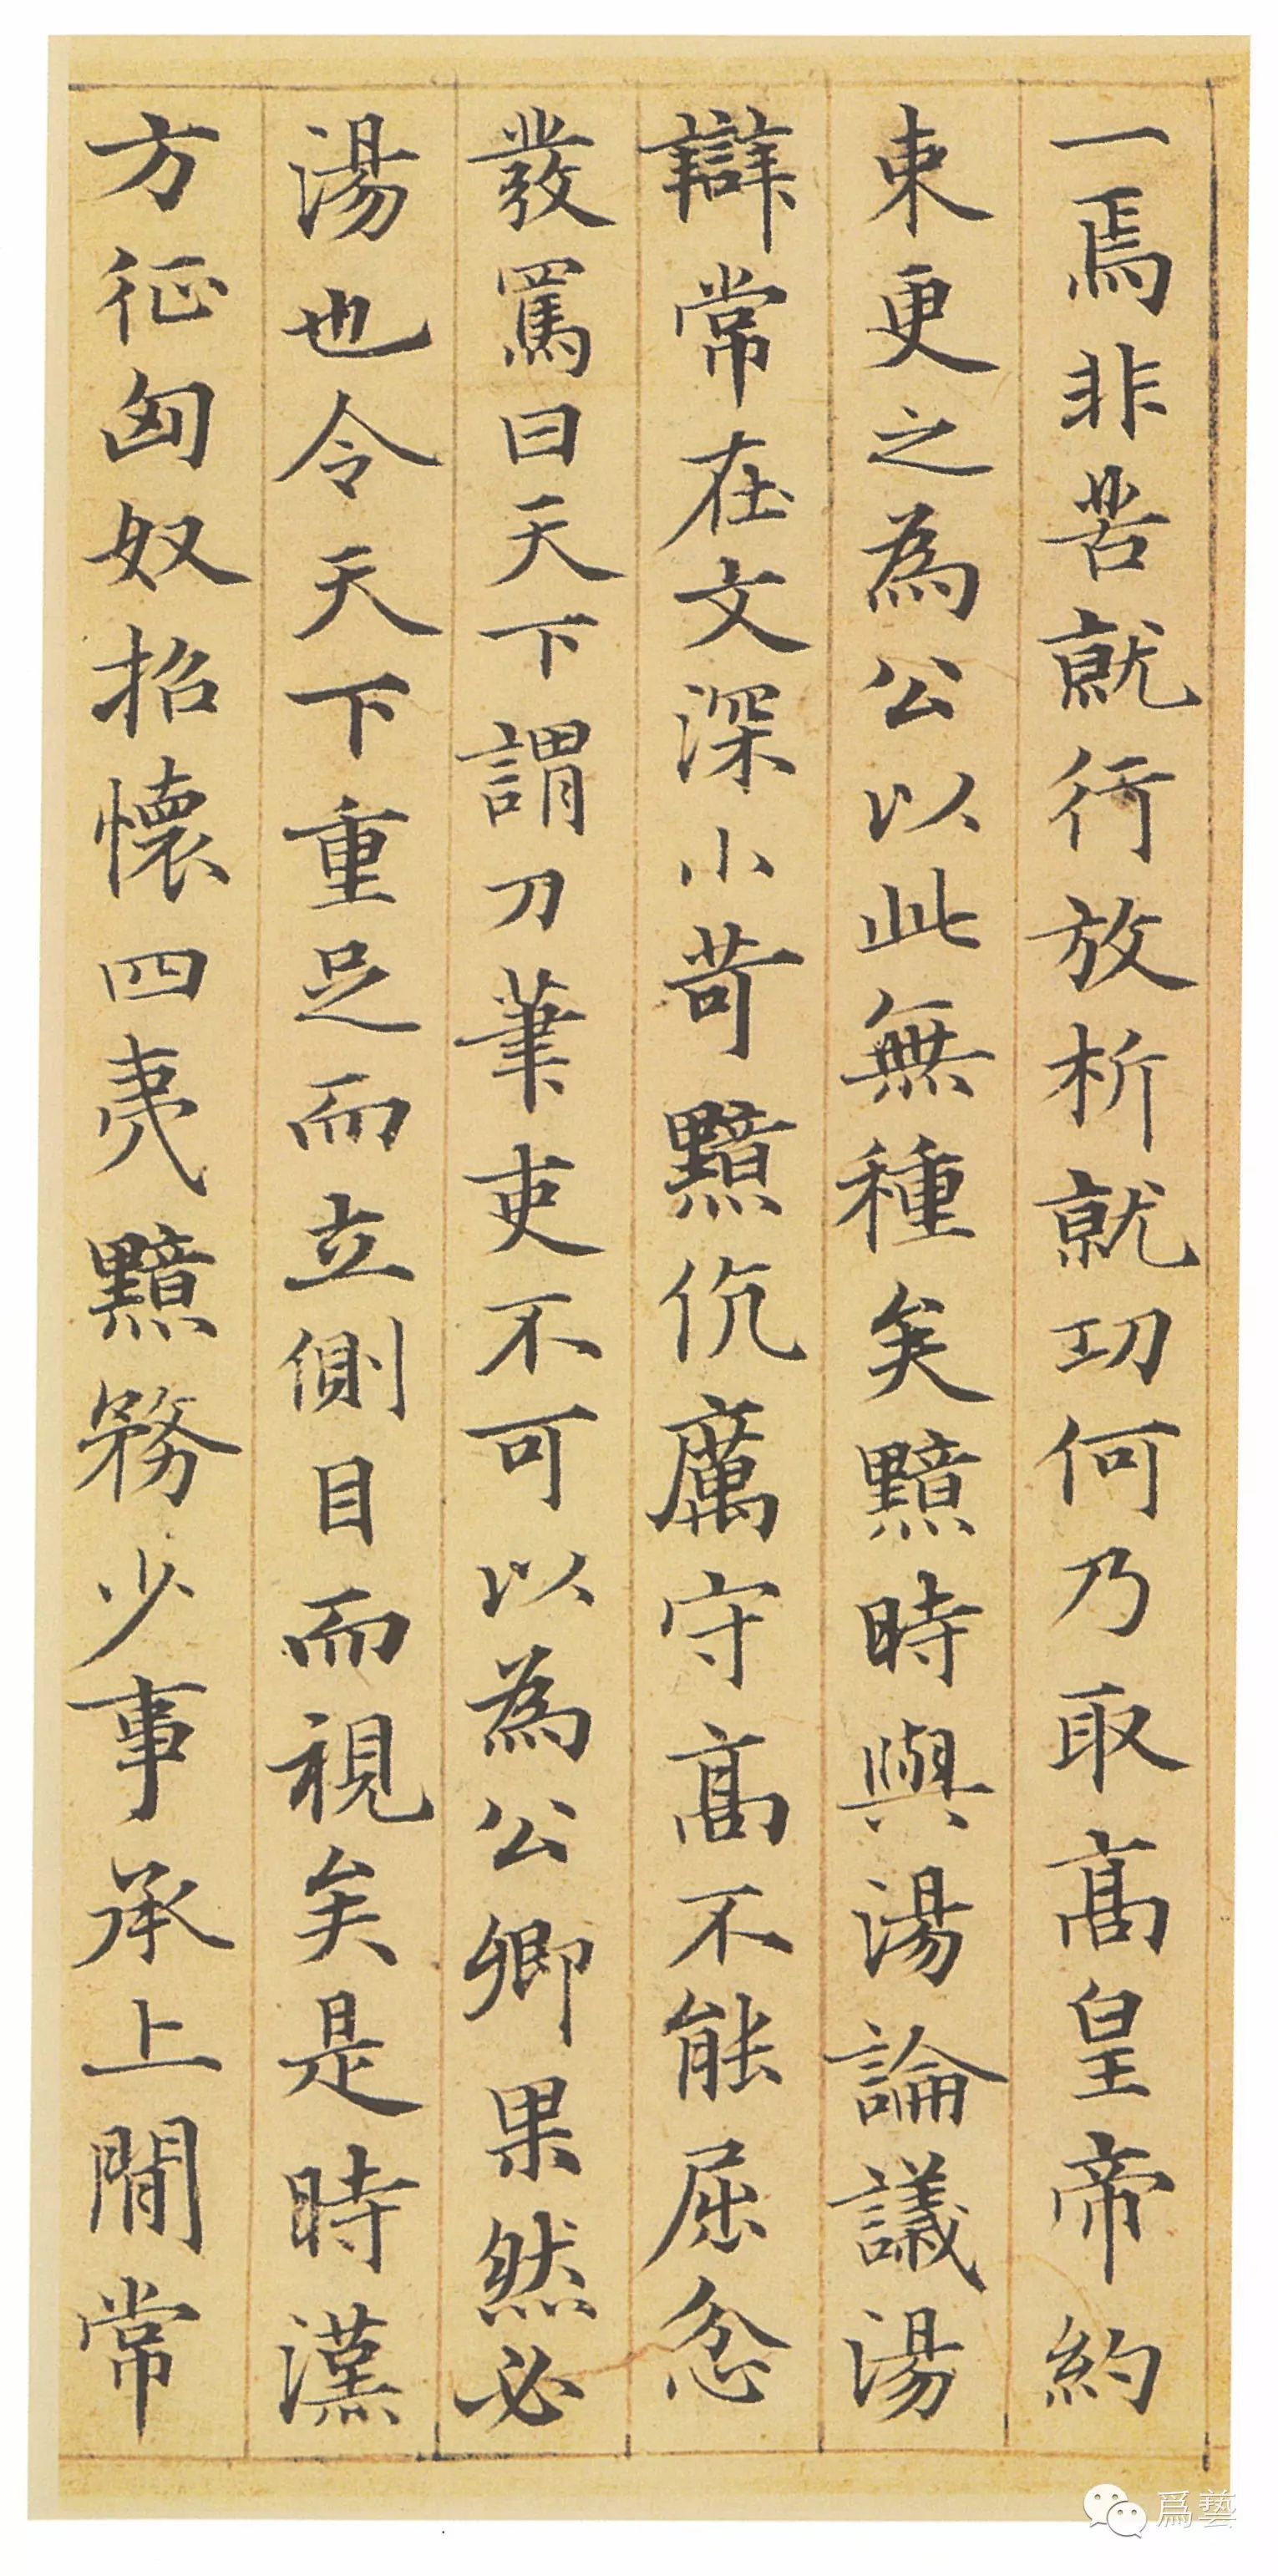 一焉非苦就行放析就功何乃取高皇帝約
束更之為公以此無種矣黯時與湯論議湯
辯常在文深小苛黯伉厲守高不能屈忿
發罵曰天下謂刀筆吏不可以為公卿果然必
湯也令天下重足而立側目而視矣是時漢
方征匈奴招懷四夷黯務少事承上閒常
爲藝